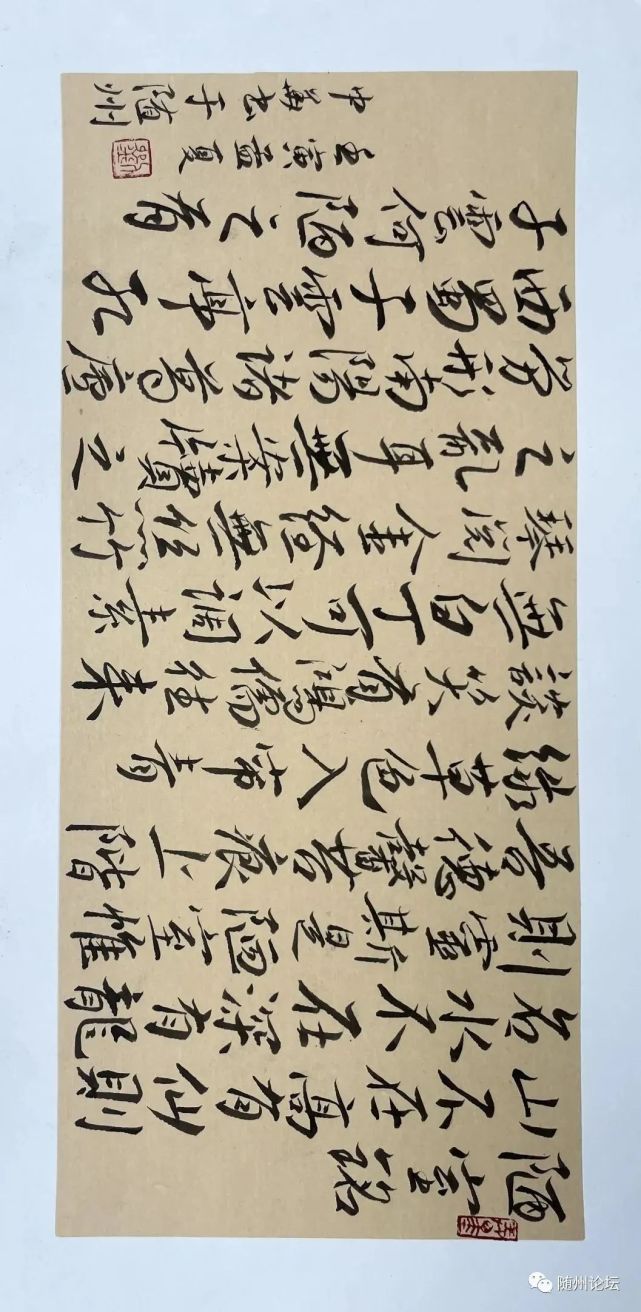 陋室铭
山不在高有仙則
名水不在深有龍
則靈斯是陋室惟
吾德馨苔痕上階
綠草色入帘青
談笑有鴻儒往来
無白丁可以調素
琴閲金經無丝竹
之亂耳無案牘之
勞形南陽諸葛廬
西蜀子雲亭孔
子雲何陋之有
壬寅孟夏
中華书于随州
随州论坛